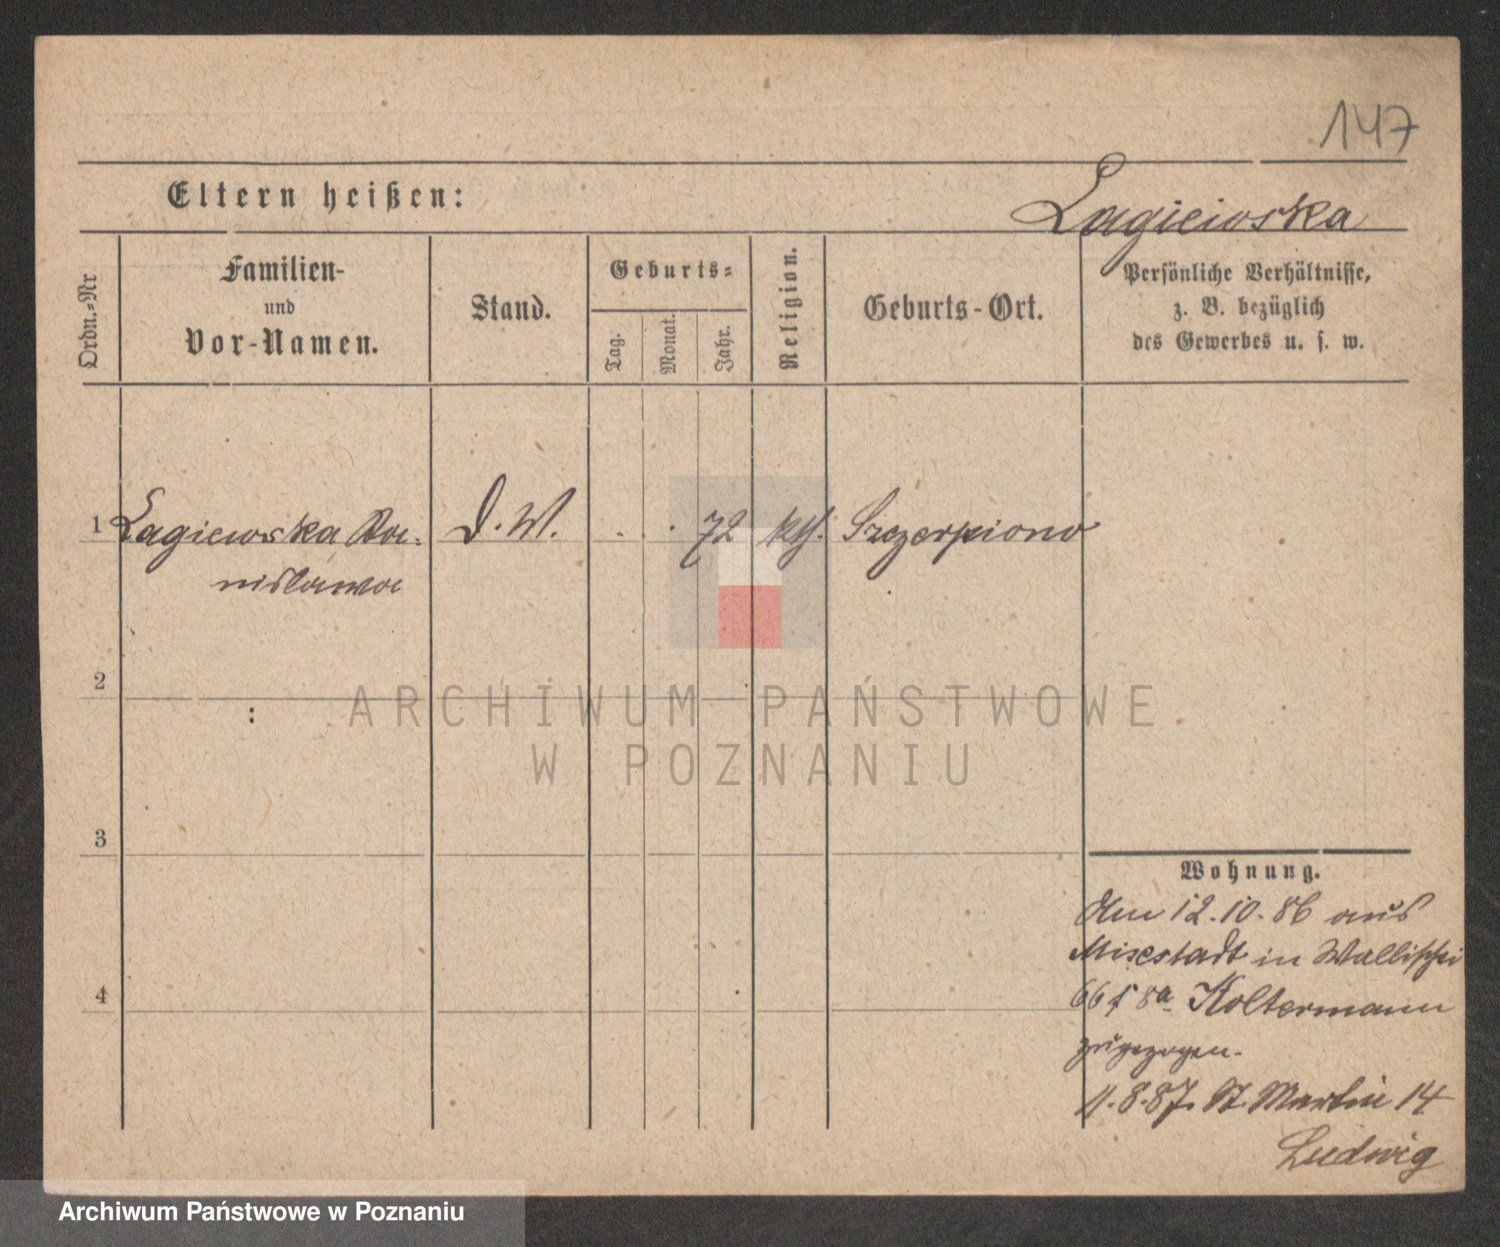 147
Eltern heißen:
Lagieioska
Ordn.-Nr
Familien-
und
Vor-Namen.
Stand.
Geburts-
Tag.
Monat.
Jahr.
Religion.
Geburts-Ort.
Persönliche Verhältnisse,
z. B. bezüglich
des Gewerbes u. s. w.
1 Lagiewska
nislawa
D. W. . . 72 kth. Szczerpiono
2
:
ARCHIWUM PAŃSTWOWE
W POZNANIU
3
4
Wohnung.
Am 12.10.86 aus
in Wallischei
Koltermann
zugezogen.
8.87. St. Martin 14
Ludwig
Archiwum Państwowe w Poznaniu